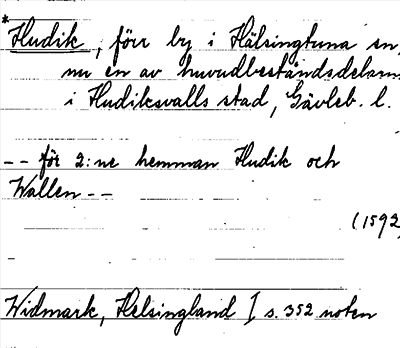 *Hudik, förr by i Hälsingtuna sn,
nu en av huvudbeståndsdelarna
i Hudiksvalls stad, Gävleb. l.
-- för 2:ne hemman Hudik och
Wallen --
(1592
Widmark, Helsingland I s. 352 noten